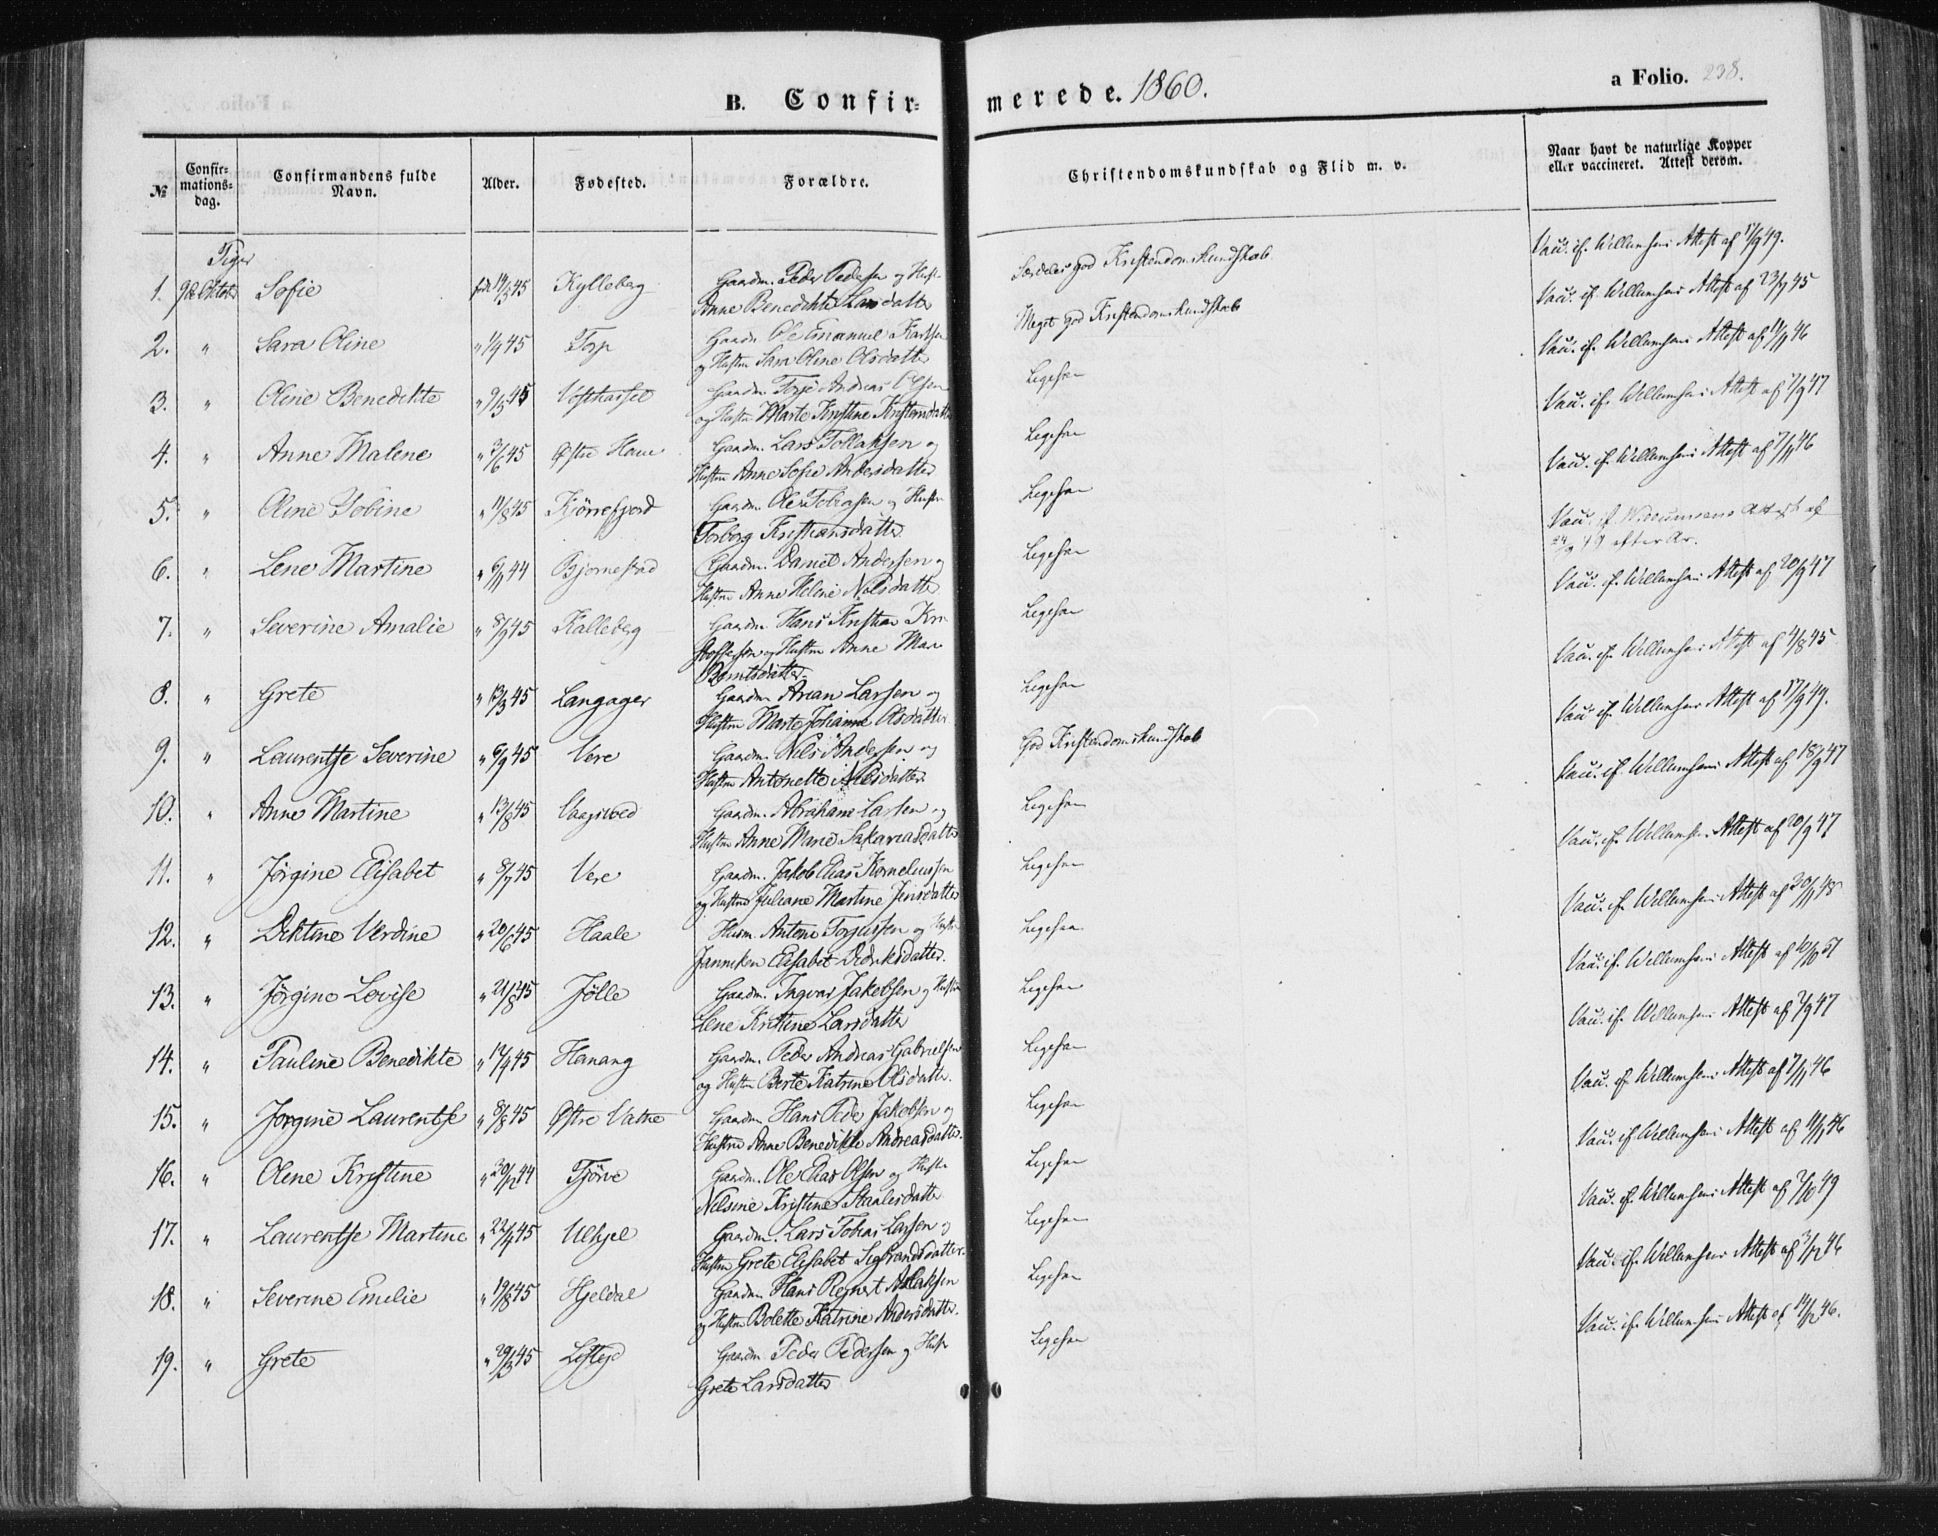 B. Confir-
merede. 1860.
a Folio. 238.
№
Confir-
mations-
dag.
Confirmandens fulde
Navn.
Alder.
Fødested.
Forældre.
Christendomskundskab og Flid m. v.
Naar havt de naturlige Kopper
eller vaccineret. Attest derom.
Piger
1. 9de Oktober Sofie født 14/5 45 Kylleberg Gaardm. Peder Pedersen og Hustr
Anne Benedikte Larsdatter
Særdeles god Kristendomskundskab
Vacc. if. Willumsens Attest af 17/9 49.
2. " Sara Oline " 1/9 45 Torp Gaardm. Ole Emanuel
og Hustru Sara Oline Olsdatter
Meget god Kristendomskundskab
Vacc. if. Willumsens Attest af 23/9 45
3. " Oline Benedikte " 9/5 45 Gaardm. Terje Andreas Olsen
og Hustru Marte Kristine
Ligesaa
Vacc. if. Willumsens Attest af 46
4. " Anne Malene " 3/6 45 Østre Gaardm. Lars Tollaksen og
Hustru Anne Sofie Andersdatter
Ligesaa
Vacc. if. Willumsens Attest af 7/9 47
5. " Oline Tobine " 11/8 45 Kjørrefjord Gaardm. Ole Tobiasen og Hustru
Torborg Kristiansdatter
Ligesaa
Vacc. if. Willumsens Attest af 7/11 46
6. " Lene Martine " 6/11 44 Bjørnestad Gaardm. Daniel Andersen og
Hustru Anne Helene Nilsdatter
Ligesaa
Vacc. if. Willumsens Attest af
24/9 49 efter Ar.
7. " Severine Amalie " 8/9 45 Kalleberg Gaardm. Hans Kristian Kri
stoffersen og Hustru Anne Mar
Berntsdatter
Ligesaa
Vacc. if. Willumsens Attest af 20/9 47
8. " Grete " 13/3 45 Langager Gaardm. Arian Larsen og
Hustru Marte Johanne Olsdatter
Ligesaa
Vacc. if. Willumsens Attest af 4/8 45
9. " Laurentse Severine " 6/9 45 Vere Gaardm. Nils Andersen og
Hustru Antonette Nilsdatter
God Kristendomskundskab
Vacc. if. Willumsens Attest af 17/9 49.
10. " Anne Martine " 13/8 45 Vaagsvold Gaardm. Abraham Larsen og
Hustru Anne Marie Sakariasdatter
Ligesaa
Vacc. if. Willumsens Attest af 18/9 47
11. " Jørgine Elisabet " 8/7 45 Vere Gaardm. Jakob Elias Korneliussen
og Hustru Juliane Martine Jensdatter
Ligesaa
Vacc. if. Willumsens Attest af 20/9 47
12. " Diktine Verdine " 20/6 45 Haale Husm. Antoni Torgersen og Hustr
Janniken Elisabet Didriksdatter.
Ligesaa
Vacc. if. Willumsens Attest af 20/11 48
13. " Jørgine Lovise " 21/8 45 Jølle Gaardm. Ingvar Jakobsen og Hustru
Lene Kristine Larsdatter
Ligesaa
Vacc. if. Willumsens Attest af 51
14. " Pauline Benedikte " 45 Hanang Gaardm. Peder Andreas Gabrielsen
og Hustru Berte Katrine Olsdatter.
Ligesaa
Vacc. if. Willumsens Attest af 7/9 47
15. " Jørgine Laurentse " 8/8 45 Østre Vatne Gaardm. Hans Peder Jakobsen og
Hustru Anne Benedikte Andreasdatter.
Ligesaa
Vacc. if. Willumsens Attest af 7/11 46
16. " Olene Kristine " 30/12 44 Tjørve Gaardm. Ole Elias Olsen og Hustru
Nilsine Kristine
Ligesaa
Vacc. if. Willumsens Attest af 46
17. " Laurentse Martine " 22/4 45 Ulhjel Gaardm. Lars Tobias Larsen og
Hustru Grete Elisabet Sigbrandsdatter.
Ligesaa
Vacc. if. Willumsens Attest af 49
18. " Severine Emilie " 19/8 45 Hjeldal Gaardm. Hans Regnert Aslaksen
og Hustru Bolette Katrine Andersdatter.
Ligesaa
Vacc. if. Willumsens Attest af 3/12 46
19. " Grete " 29/3 45 Gaardm. Peder Pedersen og Hustr
Grete Larsdatter
Ligesaa
Vacc. if. Willumsens Attest af 14/12 46.